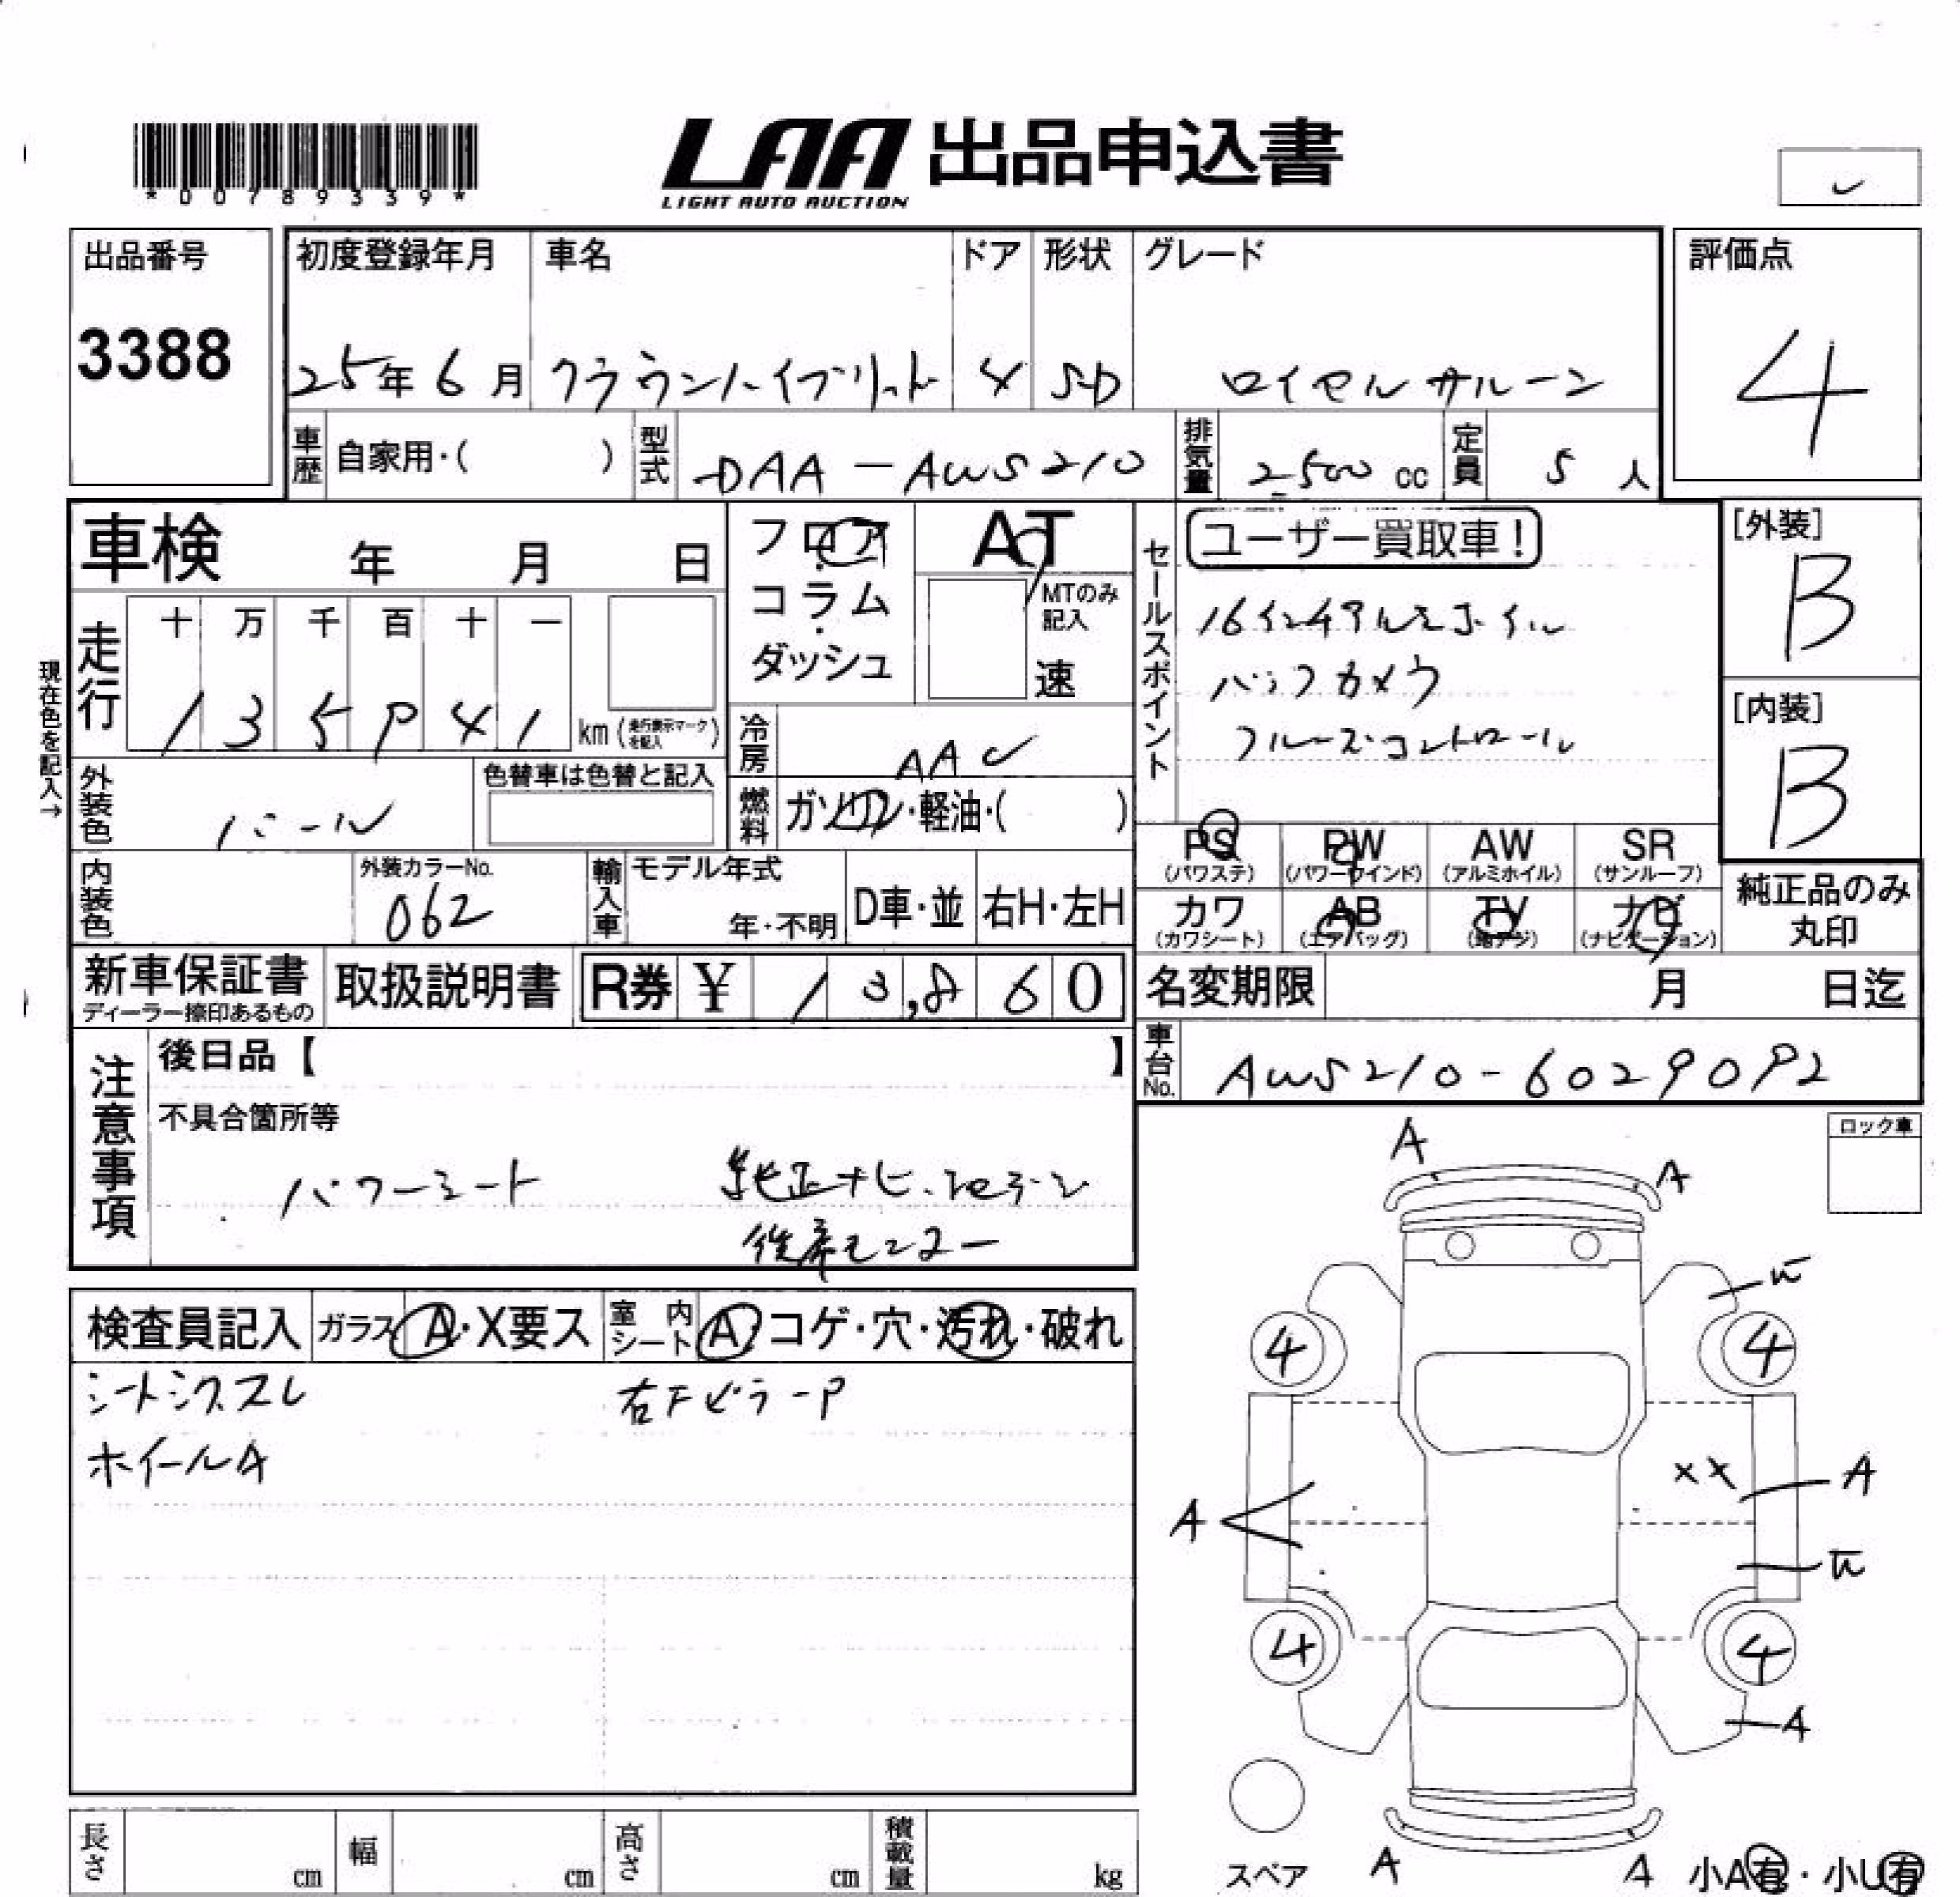 *00789339*
LAA 出品申込書
LIGHT AUTO AUCTION
出品番号
3388
初度登録年月 車名 ドア 形状 グレード
25年6月 クラウンハイブリット 4 SD ロイヤルサルーン
評価点
4
車歴 自家用・( ) 型式 DAA-AWS210 排気量 2500 cc 定員 5 人
車検 年 月 日
フロア・コラム・ダッシュ
AT
MTのみ記入
速
セールスポイント
ユーザー買取車!
16インチアルミホイル
バックカメラ
クルーズコントロール
[外装]
B
[内装]
B
現在色を記入→
走行 十 万 千 百 十 一
135941 km (走行表示マークを記入)
冷房 AAC
外装色 パール 色替車は色替と記入
燃料 ガソリン・軽油・( )
PS (パワステ) PW (パワーウインド) AW (アルミホイル) SR (サンルーフ)
カワ (カワシート) AB (エアバッグ) TV (地デジ) ナビ (ナビゲーション)
純正品のみ丸印
内装色 外装カラーNo. 062 輸入車 モデル年式 年・不明 D車・並 右H・左H
新車保証書 ディーラー捺印あるもの 取扱説明書 R券 ¥ 13,860
名変期限 月 日迄
車台No. AWS210-6029092
注意事項
後日品【 】
不具合箇所等
パワーシート 純正ナビ
ロック車
検査員記入 ガラス A・X要ス 室内シート A コゲ・穴・汚れ・破れ
シートシワスレ 右FピラーP
ホイールA
A
A
4 4
XX A
A
4 4
A
スペア
A A
小A有・小U有
長さ cm 幅 cm 高さ cm 積載量 kg